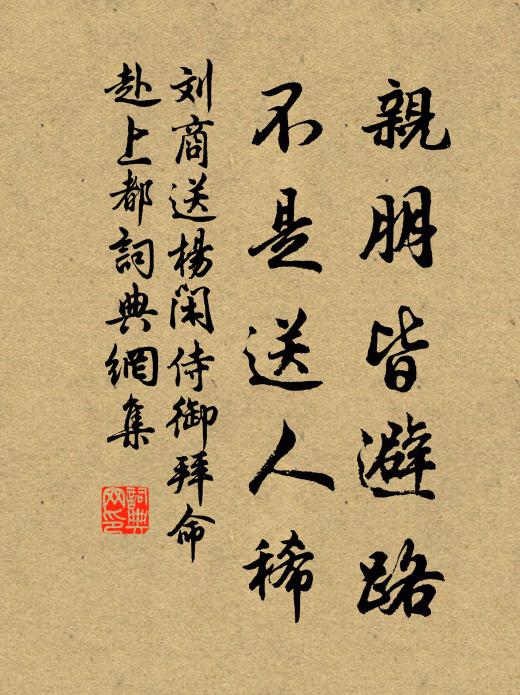 親朋皆避路
不是送人稀
刘商送楊閑侍御拜命
赴上都詞典網集
詞典
网印